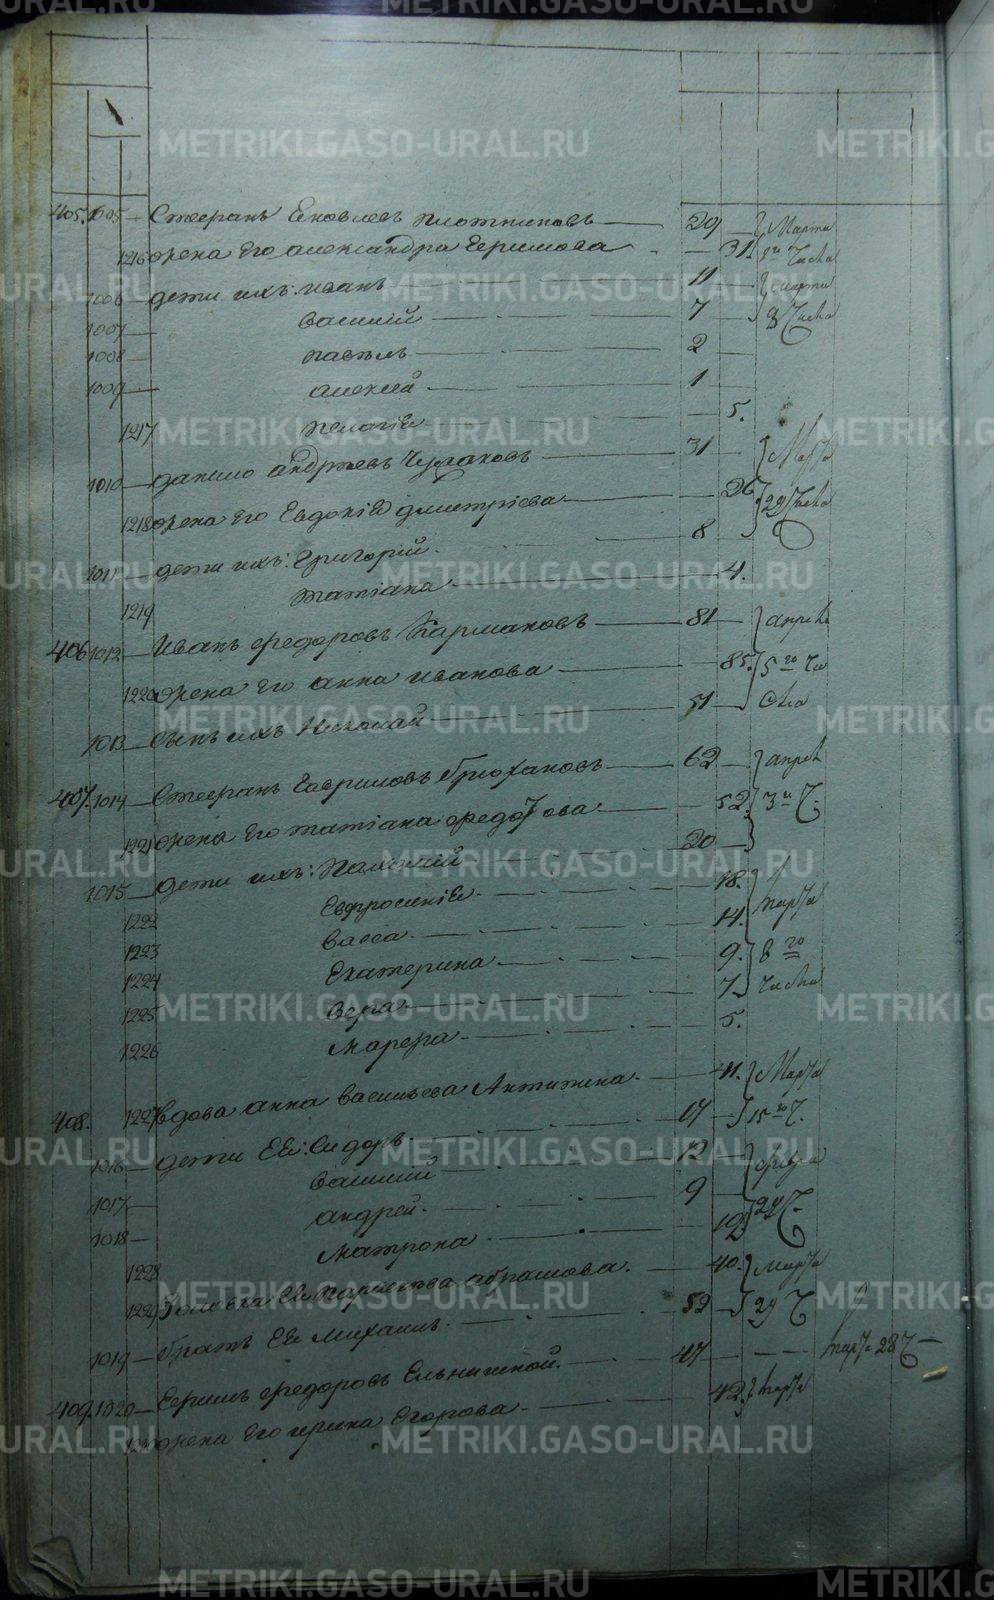 405. 1005 Стефанъ Яковлевъ Плотниковъ 29 Марта
1216 жена Его александра Ефимова 31 8го Числа
1006 дети ихъ: иванъ 11 марта
1007 василий 7 8 Числа
1008 павелъ 2
1009 алексей 1
1217 пелагiя 5.
1010 данило андреевъ 31 Марта
1218 жена Его Евдокiя дмитрiева 26 29 Числа
1011 дети ихъ: Григорiй 8
1219 татiана 4.
406 1012 Иванъ федоровъ Кармановъ 81 апреля
1220 жена Его анна иванова 85. 5го Чи
1013 сынъ ихъ Николай 51 сла
407. 1014 Стефанъ Гавриловъ брюхановъ 62 апреля
1221 жена Его татiана федотова 52 3го Ч.
1015 дети ихъ: 20
1222 Евфросинiя 18. Марта
1223 васса 14.
1224 Екатерина 9. 8го
1225 вера 7. числа
1226 марфа 5.
408. 1227 вдова анна васильева 41. Марта
1016 дети Ея: Сидоръ 17 15го Ч.
1017 василий 12 февра
1018 андрей 9 29 Ч.
1228 матрона 19
1229 Золовка Ея абрамова 40. Марта
1019 братъ Ея михаилъ 52 29 Ч
409. 1020 Ефимъ федоровъ Ельнишной 47 марта 28 Ч
1230 жена Его ирина Егорова 42. марта
METRIKI.GASO-URAL.RU